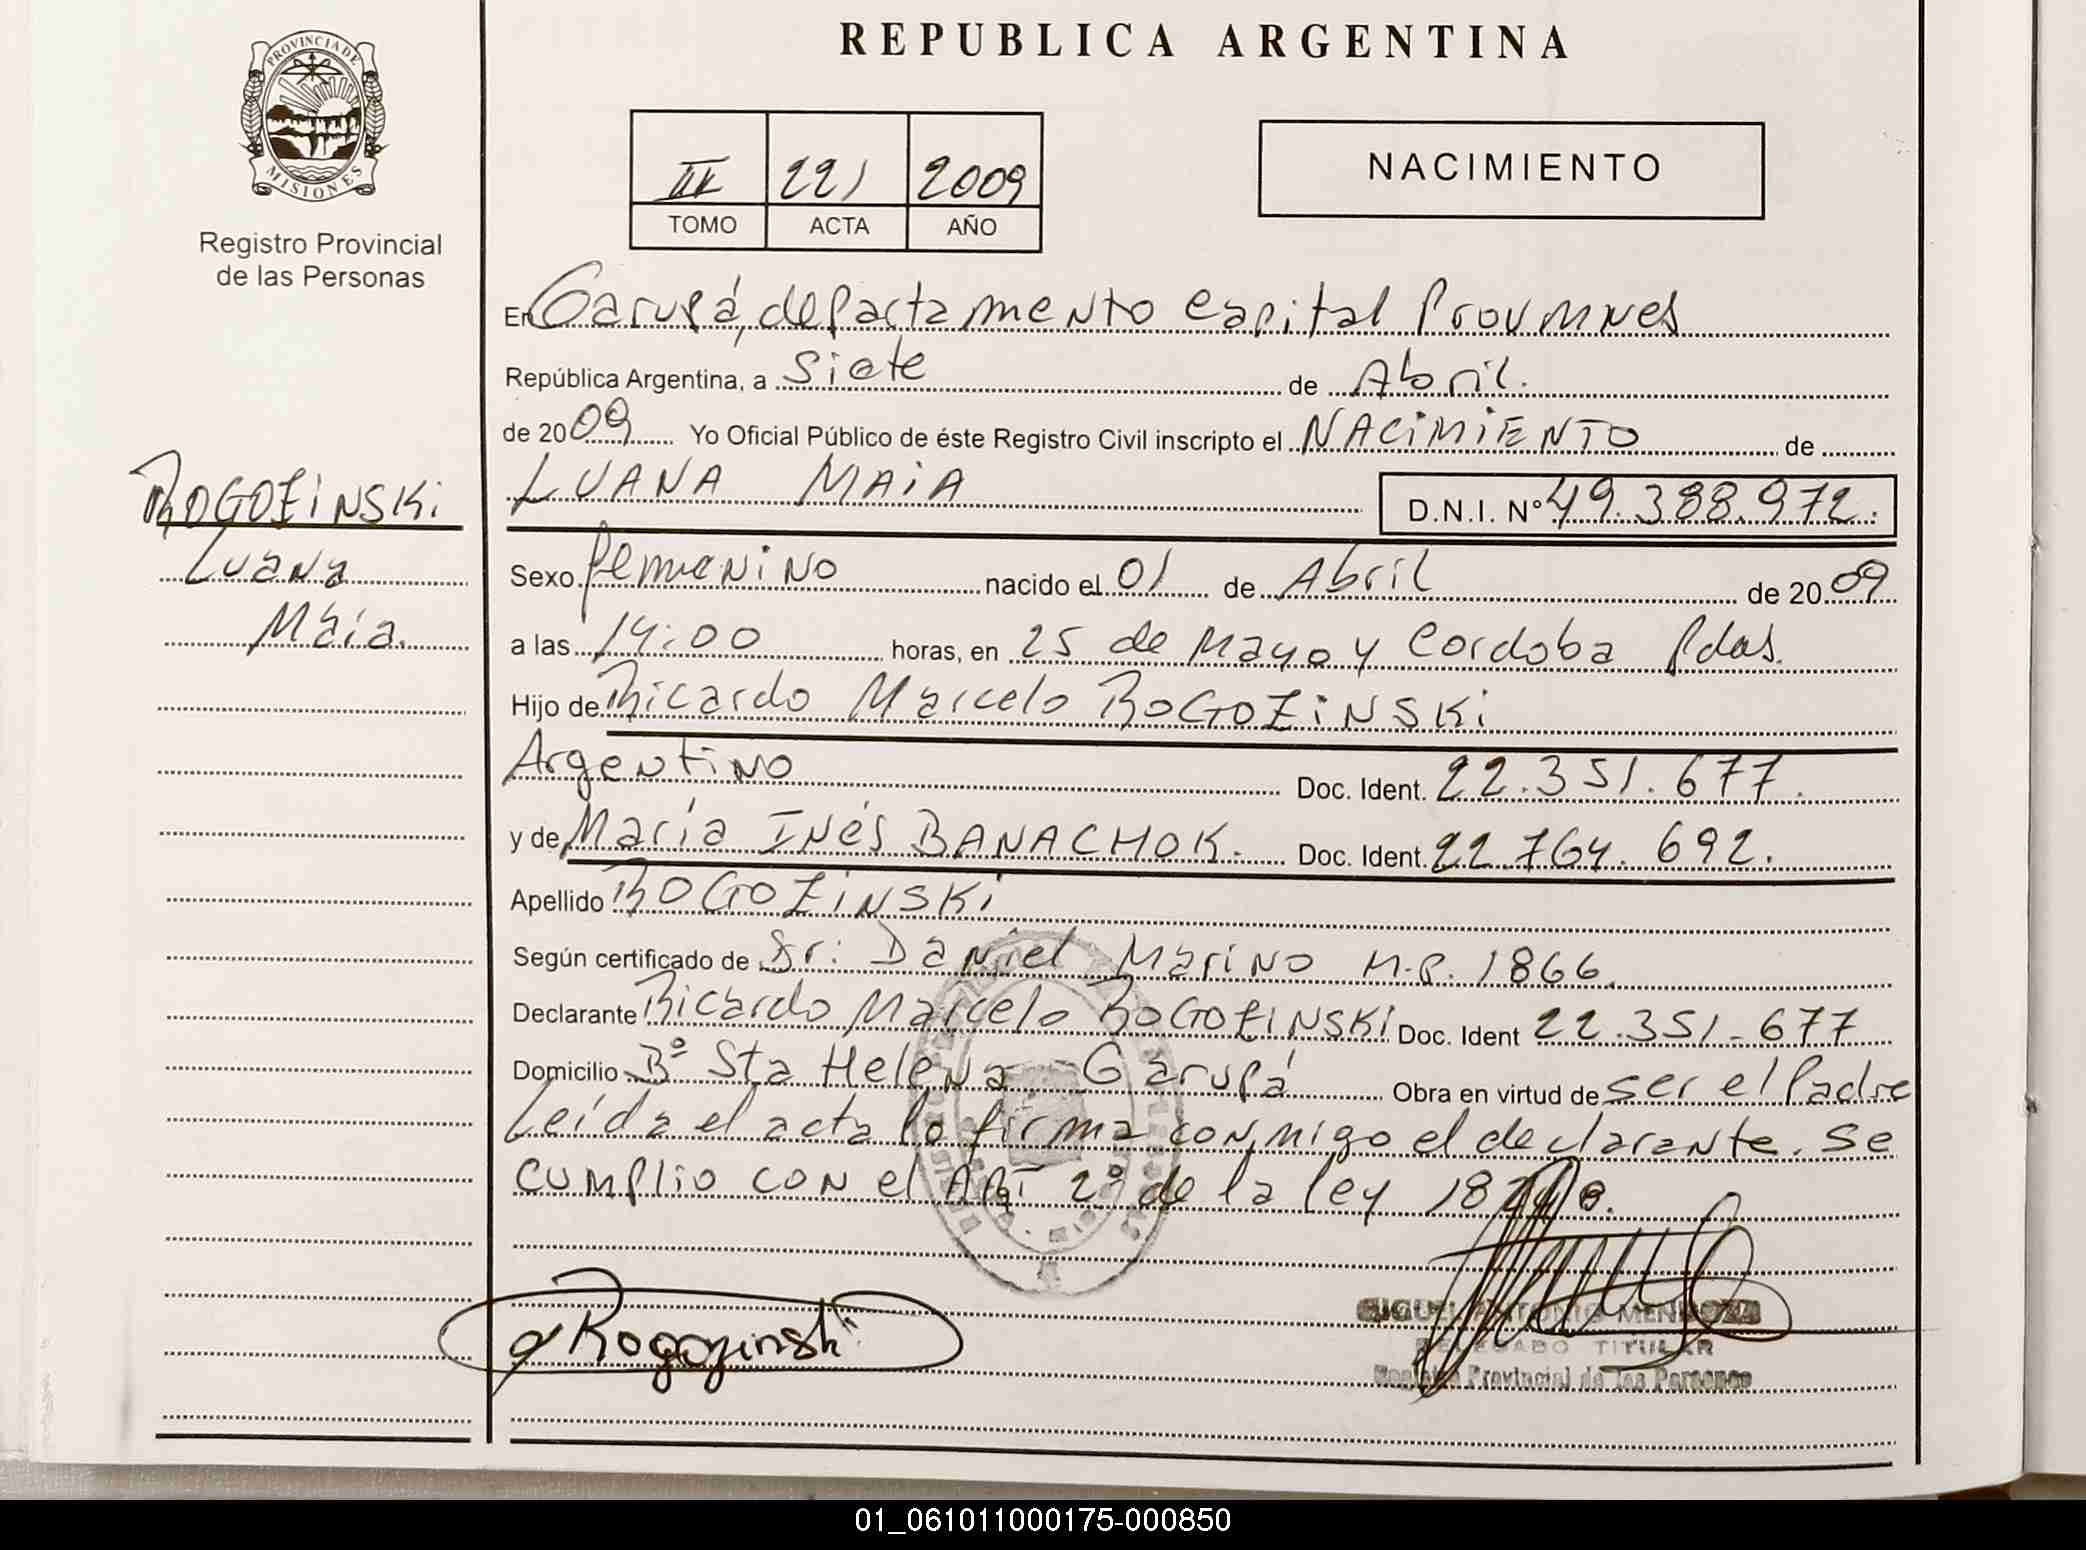 REPUBLICA ARGENTINA
PROVINCIA DE
MISIONES
Registro Provincial
de las Personas
III 221 2009
TOMO ACTA AÑO
NACIMIENTO
En Garupá, departamento Capital Prov Mnes
República Argentina, a Siete de Abril.
de 2009 Yo Oficial Público de éste Registro Civil inscripto el NACIMIENTO de
LUANA MAIA D.N.I. Nº 49.388.972.
ROGOZINSKI
Luana
Maia.
Sexo femenino nacido el 01 de Abril de 2009
a las 14:00 horas, en 25 de Mayo y Cordoba Pdas.
Hijo de Ricardo Marcelo ROGOZINSKI
Argentino Doc. Ident. 22.351.677.
y de María INés BANACHOK. Doc. Ident. 22.764.692.
Apellido ROGOZINSKI
Según certificado de Dr: Daniel Marino M.P. 1866.
Declarante Ricardo Marcelo ROGOZINSKI Doc. Ident 22.351-677
Domicilio Bº Sta Helena Garupá Obra en virtud de ser el Padre
Leída el acta lo firma conmigo el declarante. Se
cumplio con el ART 2º de la ley
Rogozinski
MIGUEL ANTONIO MENDOZA
DELEGADO TITULAR
Registro Provincial de las Personas
01_061011000175-000850